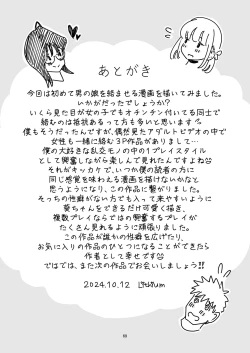 あとがき
今回は初めて男の娘を絡ませる漫画を描いてみました。
いかがだったでしょうか?
いくら見た目が女の子でもオチンチン付いてる同士で
絡むのは抵抗あるって方も多いと思います
僕もそうだったんですが、偶然見たアダルトビデオの中で
女性も一緒に絡む3P作品がありまして…
僕の大好きな乱交モノの中の1プレイスタイル
として興奮しながら楽しんで見れたんですよね
それがキッカケで、いつか僕の読者の方に
同じ感覚を味わえる漫画を描けないかなと
思うようになり、この作品に繋がりました。
そっちの性癖がない方でも入って来やすいように
葵ちゃんをできるだけ可愛く描き、
複数プレイならではの興奮するプレイが
たくさん見れるように頑張りました。
この作品が誰かの性癖を広げたり、
お気に入りの作品のひとつになることができたら
作者として幸せです
ではでは、また次の作品でお会いしましょう!!
2024.10.12